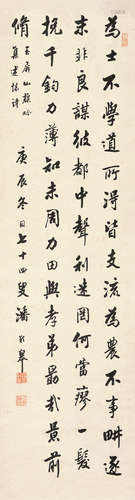 為士不學道所得皆支流為農不事畊逐
末非良謀彼都中聲利迷罔何當瘳一髮
挽千鈞力薄知未周力田與孝弟勗哉景前
脩
玉屏山
述懷詩
庚辰冬日七十四叟潘齡皋